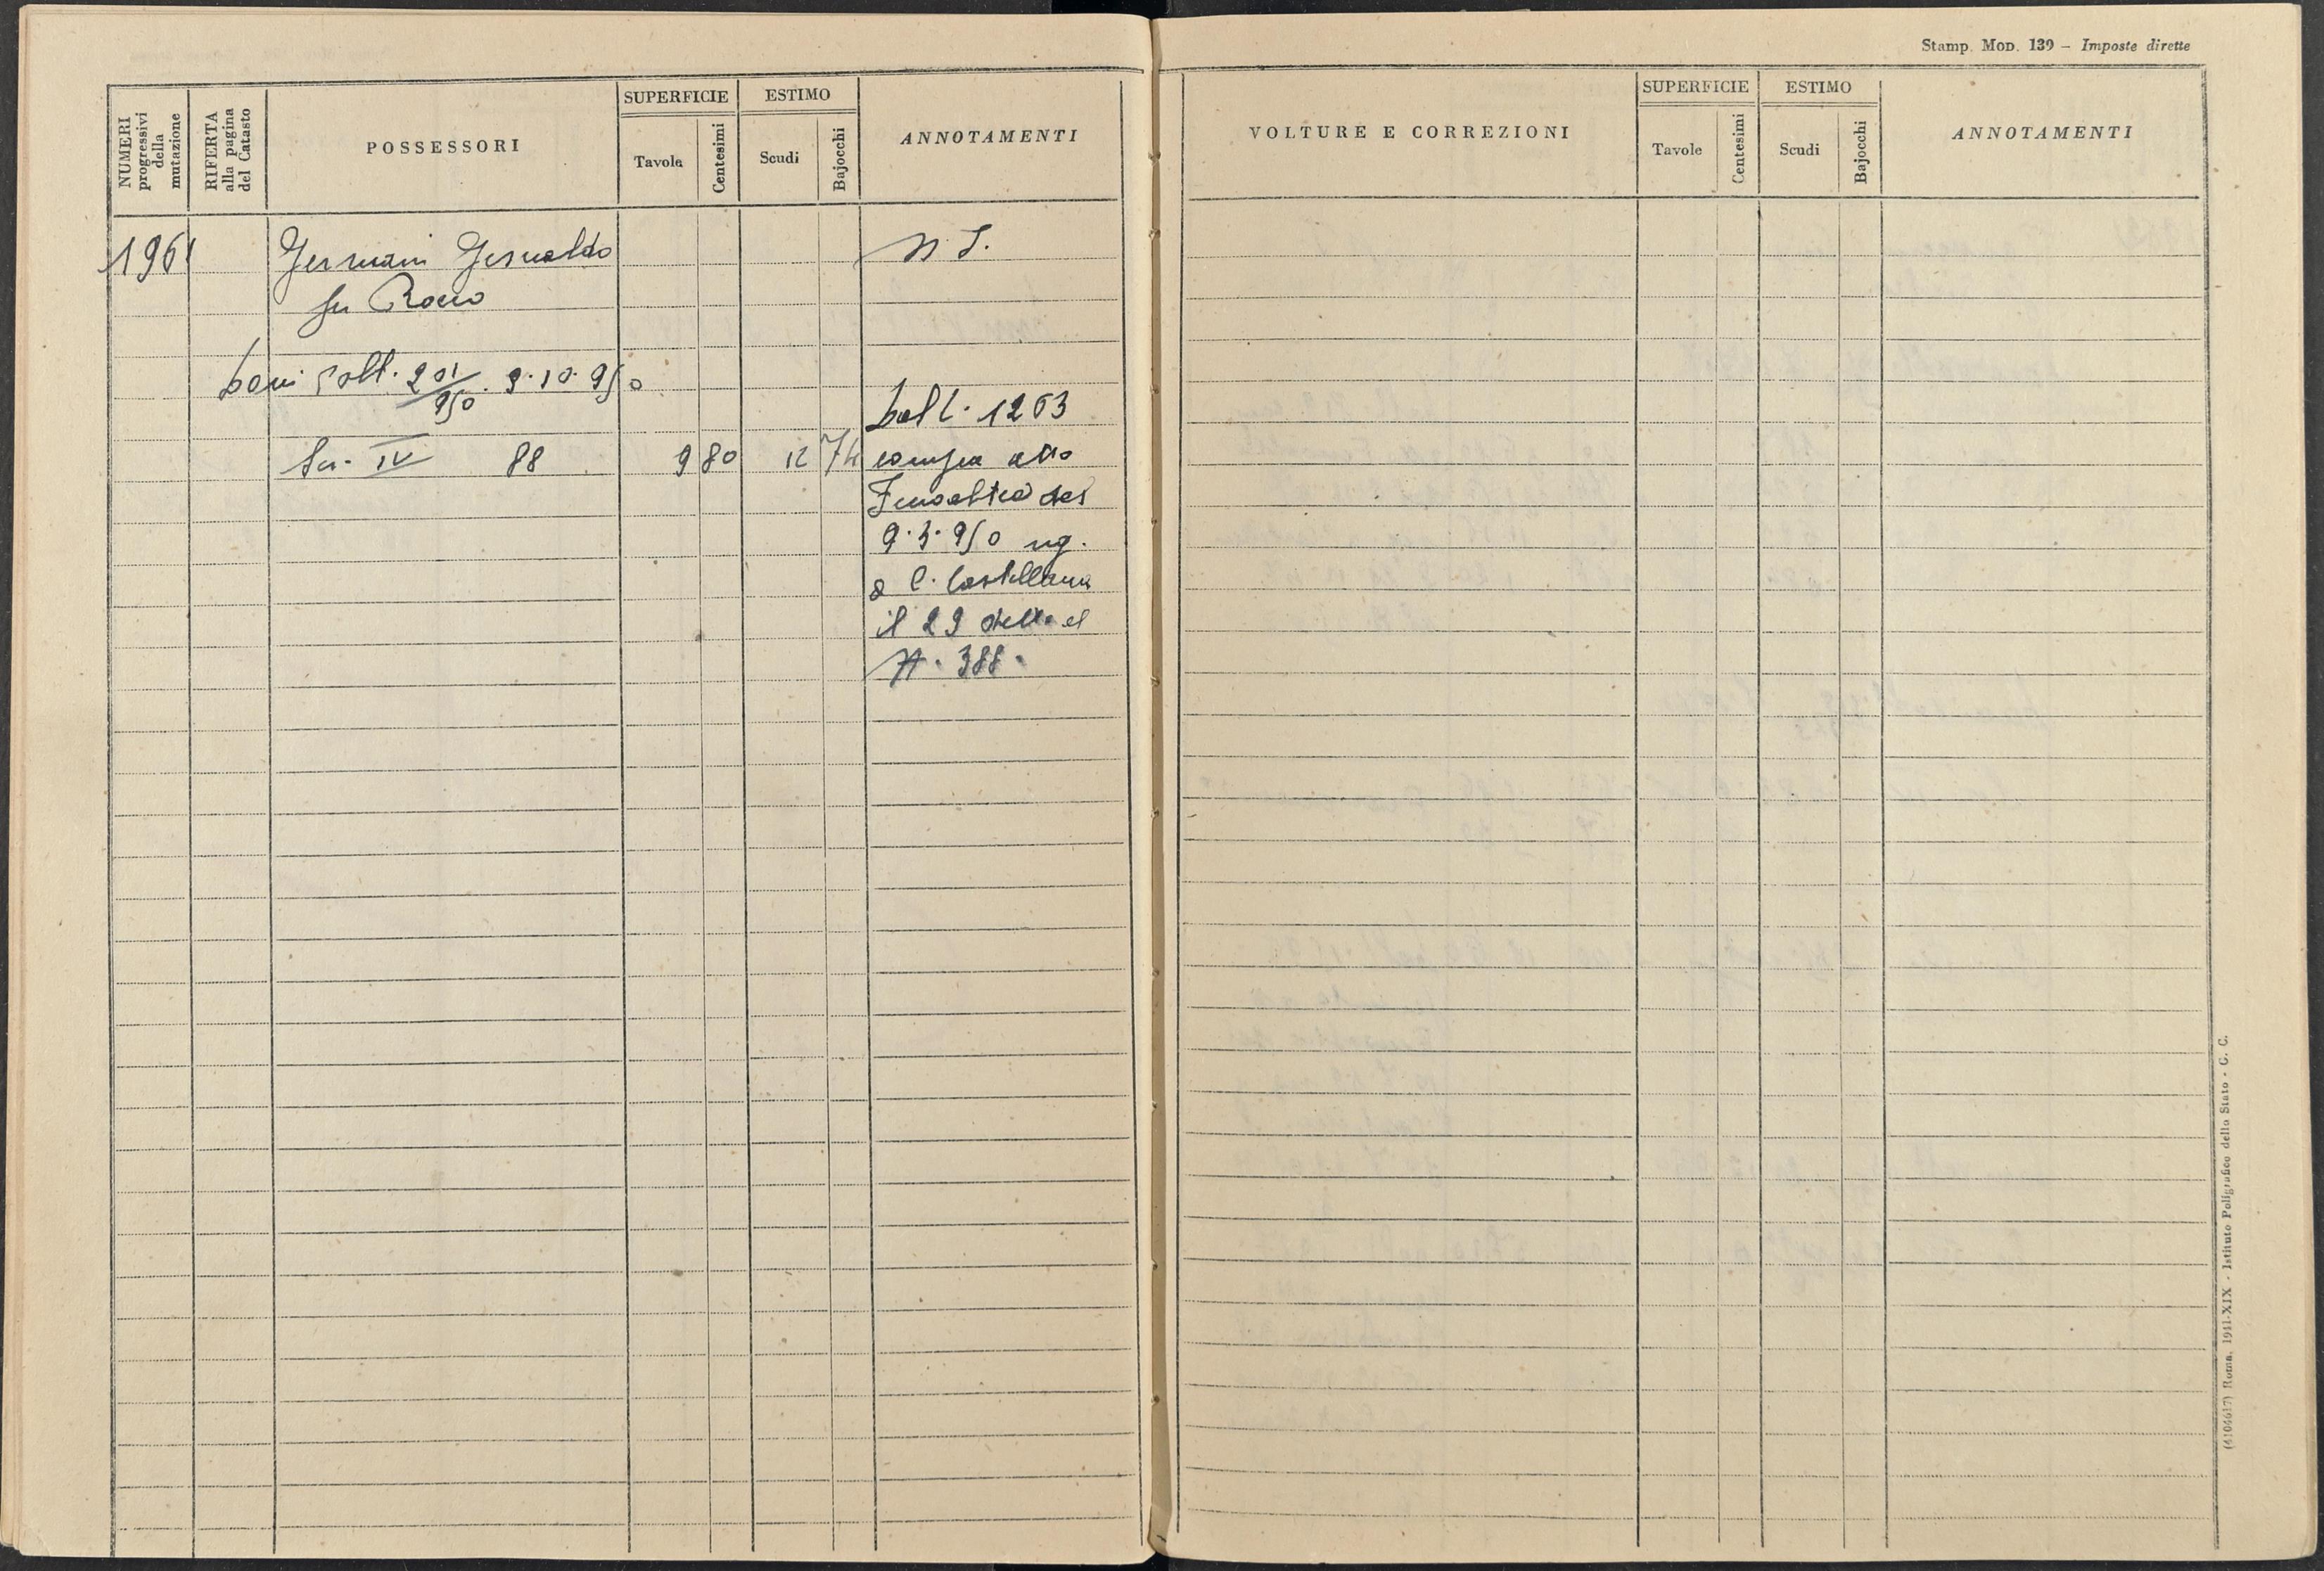 Stamp. MOD. 139 – Imposte dirette
NUMERI progressivi della mutazione
RIFERTA alla pagina del Catasto
POSSESSORI
SUPERFICIE
Tavole
Centesimi
ESTIMO
Scudi
Bajocchi
ANNOTAMENTI
VOLTURE E CORREZIONI
SUPERFICIE
Tavole
Centesimi
ESTIMO
Scudi
Bajocchi
ANNOTAMENTI
1961 Germani Gesualdo
fu Rocco
volt. 201/950 . 9.10.950
Sez. IV 88 9 80 12 74
1263
compra atto
del
9.3.950 reg.
a C. Castellana
il 29 detto al
N. 388.
(4104617) Roma, 1941-XIX - Istituto Poligrafico dello Stato - G. C.